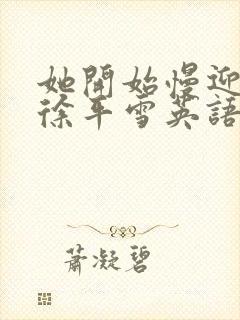 她開始慢迎
徐年雪英語
蕭凝碧